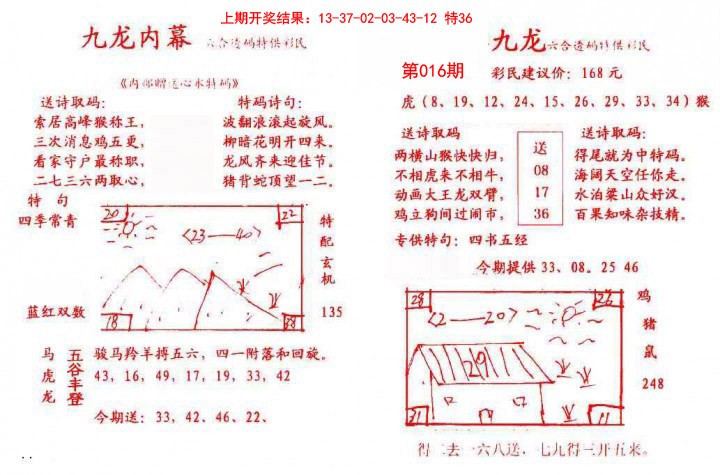 上期开奖结果：13-37-02-03-43-12 特36
九龙内幕 六合透码特供彩民
《内部赠送心水特码》
送诗取码：
索居高峰猴称王，
三次消息鸡五更，
看家守户最称职，
二七三六两取心，
特码诗句：
波翻浪滚起旋风。
柳暗花明开四来。
龙风齐来迎佳节。
猪背蛇顶望一二。
特 句
四季常青
蓝红双数
20
22
<23—40>
18
38
特配玄机
135
马虎龙
五谷丰登
骏马羚羊搏五六，四一附落和回旋。
43，16，49，17，19，33，42
今期送：33，42、46、22、
九龙 六合透码特供彩民
第016期
彩民建议价：168 元
虎（8、19、12、24、15、26、29、33、34）猴
送诗取码
两横山猴快快归，
不相虎来不相牛，
动画大王龙双臂，
鸡立狗间过闹市，
送
08
17
36
送诗取码：
得尾就为中特码。
海阔天空任你走。
水泊梁山众好汉。
百果知味杂技精。
专供特句：四书五经
今期提供 33、08。25 46
28
26
<2—20>
29
31
11
鸡猪鼠
248
得二去一六八送，七九得三开五来。